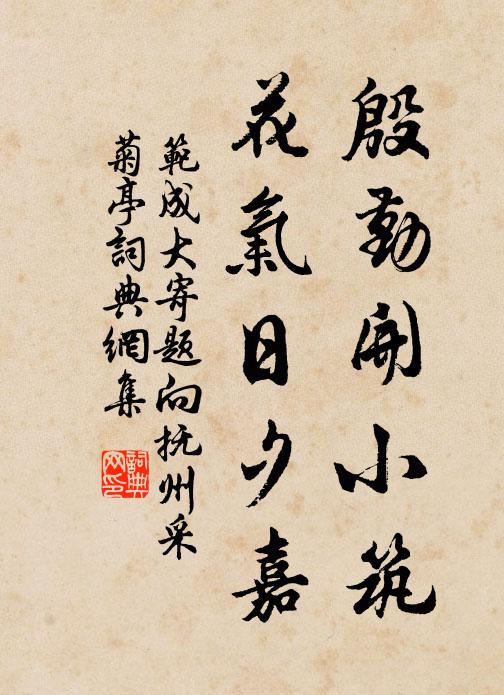 殷勤開小筑
花氣日夕嘉
範成大寄題向抚州采
菊亭詞典網集
詞典
网印